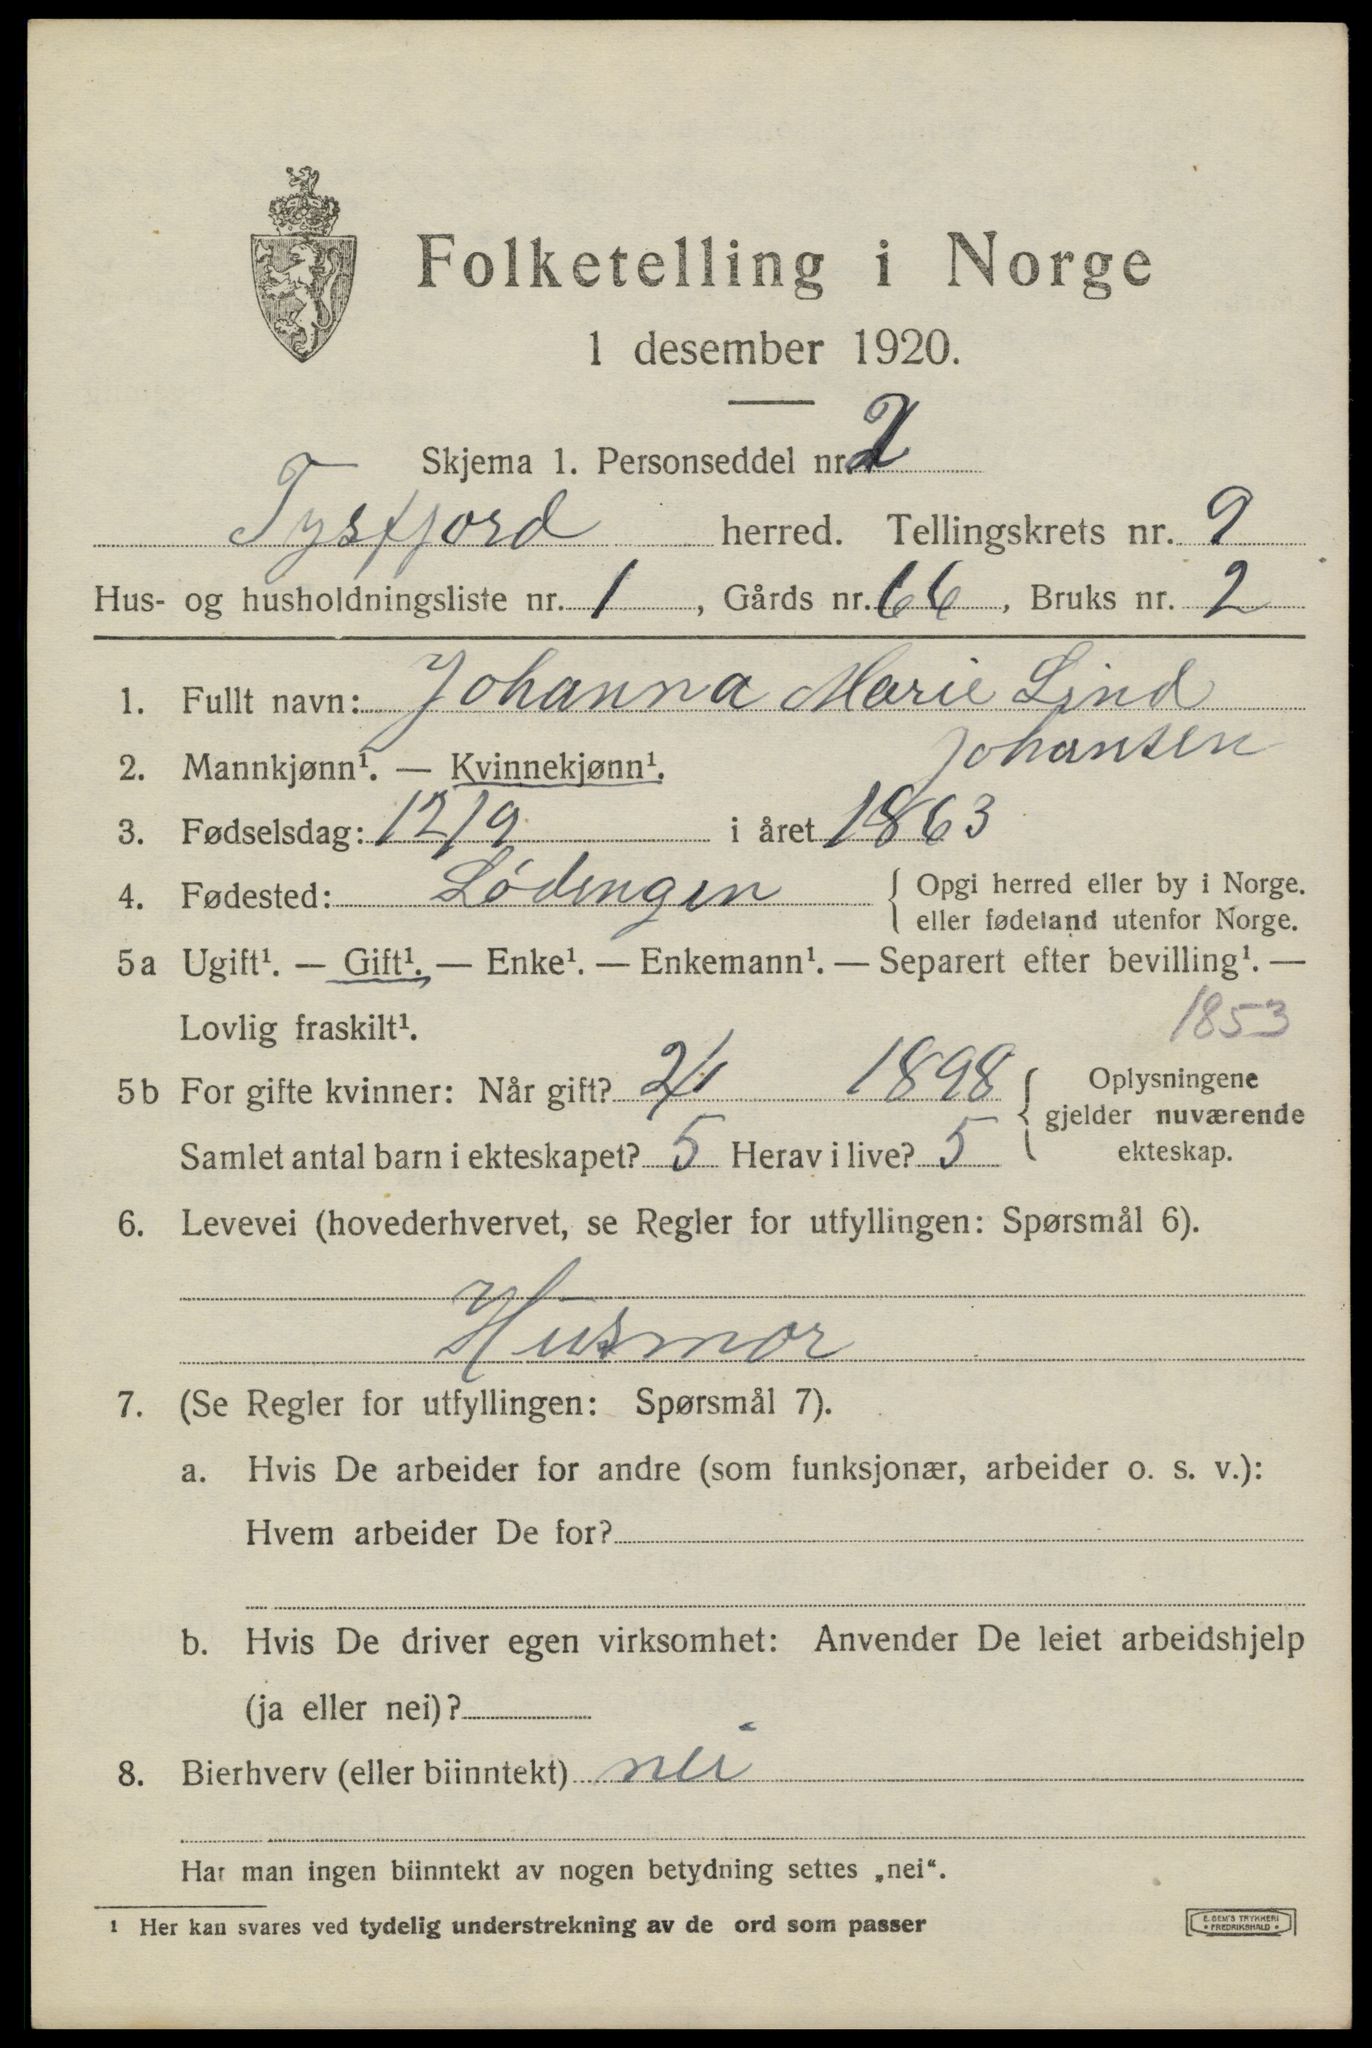 Folketelling i Norge
1 desember 1920.
Skjema 1. Personseddel nr. 2
Tysfjord herred. Tellingskrets nr. 9
Hus- og husholdningsliste nr. 1, Gårds nr. 66, Bruks nr. 2
1. Fullt navn: Johanna Marie Lind
Johansen
2. Mannkjønn¹. — Kvinnekjønn¹.
3. Fødselsdag: 12/9 i året 1863
4. Fødested: Lødingen { Opgi herred eller by i Norge.
eller fødeland utenfor Norge.
5a Ugift¹. — Gift¹. — Enke¹. — Enkemann¹. — Separert efter bevilling¹. —
Lovlig fraskilt¹. 1853
5b For gifte kvinner: Når gift? 2/1 1898 { Oplysningene
gjelder nuværende
Samlet antal barn i ekteskapet? 5 Herav i live? 5 ekteskap.
6. Levevei (hovederhvervet, se Regler for utfyllingen: Spørsmål 6).
Husmor
7. (Se Regler for utfyllingen: Spørsmål 7).
a. Hvis De arbeider for andre (som funksjonær, arbeider o. s. v.):
Hvem arbeider De for?
b. Hvis De driver egen virksomhet: Anvender De leiet arbeidshjelp
(ja eller nei)?
8. Bierhverv (eller biinntekt) nei
Har man ingen biinntekt av nogen betydning settes „nei“.
¹ Her kan svares ved tydelig understrekning av de ord som passer
E. SEM'S TRYKKERI
FREDRIKSHALD